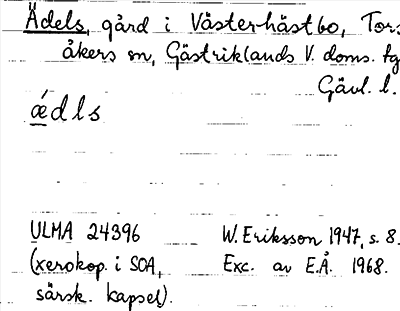 Ädels, gård i Västerhästbo, Tors
åkers sn, Gästriklands V. doms. tg
Gävl. l.
ǽdls
ULMA 24396
(xerokop. i SOA,
särsk. kapsel).
W. Eriksson 1947, s. 8.
Exc. av E.Å. 1968.